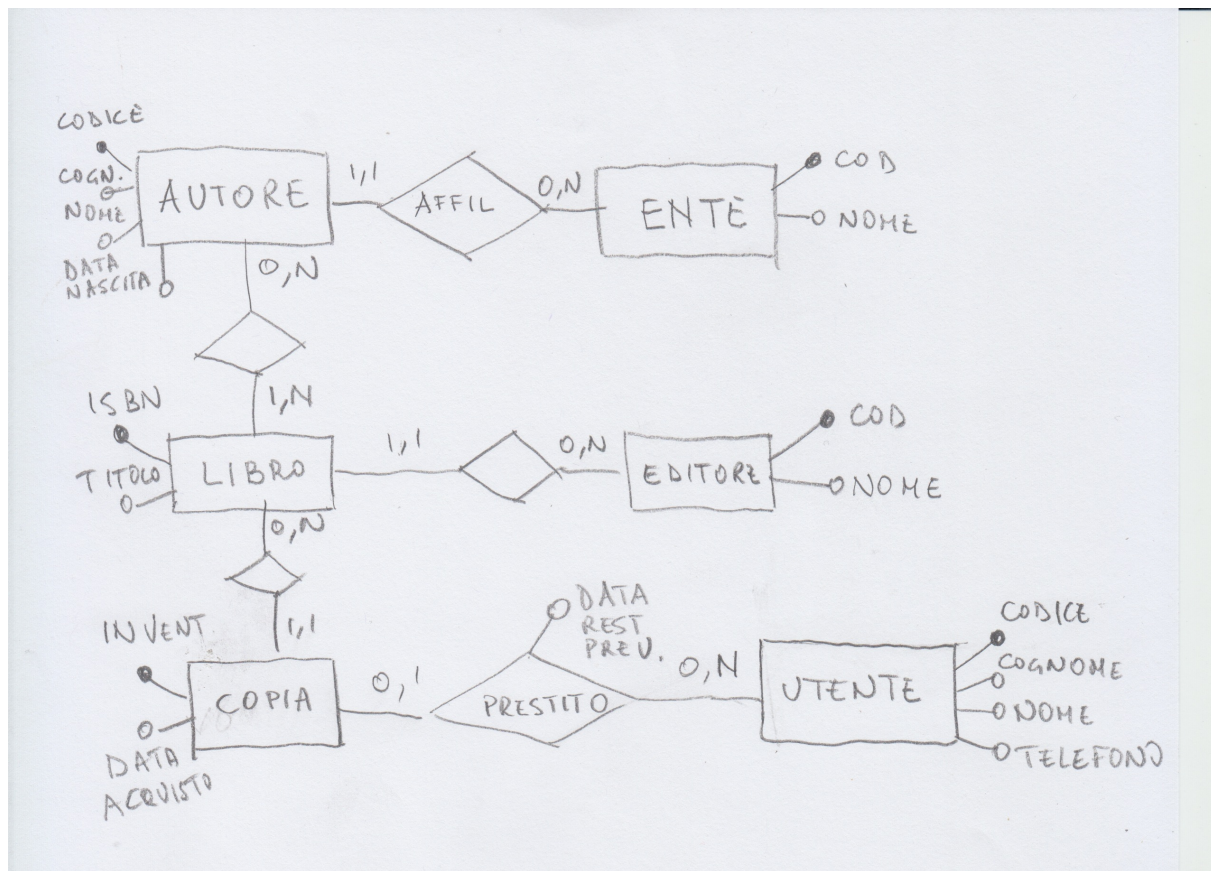 CODICE
COGN.
NOME
DATA
NASCITA
AUTORE
1,1
AFFIL
0,N
ENTE
COD
NOME
0,N
1,N
ISBN
TITOLO
LIBRO
1,1
0,N
EDITORE
COD
NOME
0,N
1,1
INVENT.
DATA
ACQUISTO
COPIA
0,1
DATA
REST
PREV.
PRESTITO
0,N
UTENTE
CODICE
COGNOME
NOME
TELEFONO